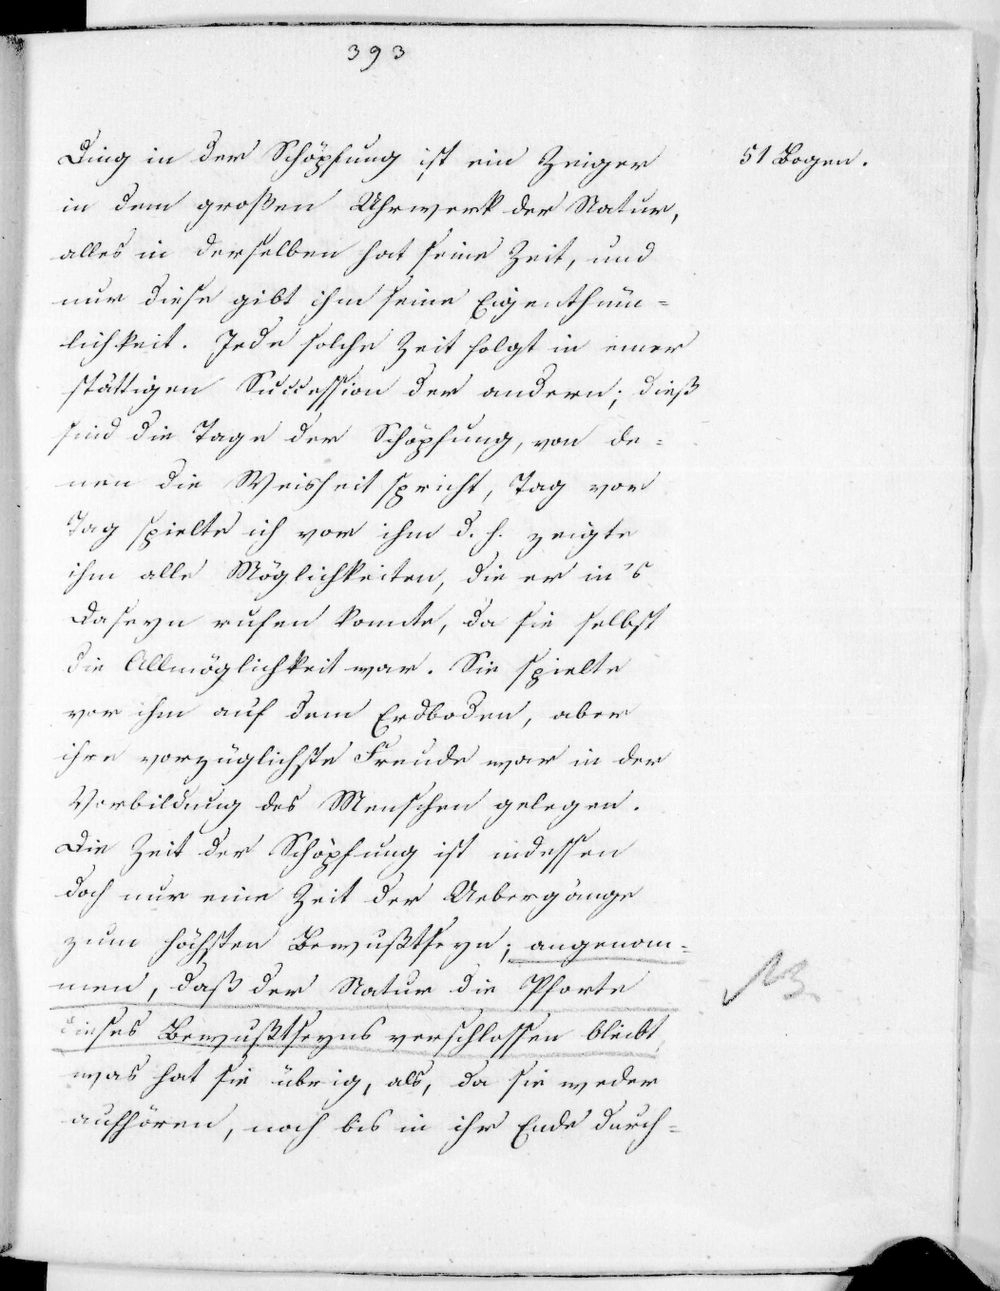 393
Ding in der Schöpfung ist ein Zeiger
51 Bogen.
in dem großen Uhrwerk der Natur,
alles in derselben hat seine Zeit, und
nur diese gibt ihm seine Eigenthüm=
lichkeit. Jede solche Zeit folgt in einer
stättigen Succession der andern; dieß
sind die Tage der Schöpfung, von de=
nen die Weisheit spricht, Tag vor
Tag spielte ich vor ihm d. h. zeigte
ihm alle Möglichkeiten, die er in's
Daseyn rufen konnte, da sie selbst
die Allmöglichkeit war. Sie spielte
vor ihm auf dem Erdboden, aber
ihre vorzüglichste Freude war in der
Vorbildung des Menschen gelegen.
Die Zeit der Schöpfung ist indessen
doch nur eine Zeit der Uebergänge
zum höchsten Bewußtseyn; angenom=
men, daß der Natur die Pforte
NB.
dieses Bewußtseyns verschlossen bleibt,
was hat sie übrig, als, da sie weder
aufhören, noch bis in ihr Ende durch=